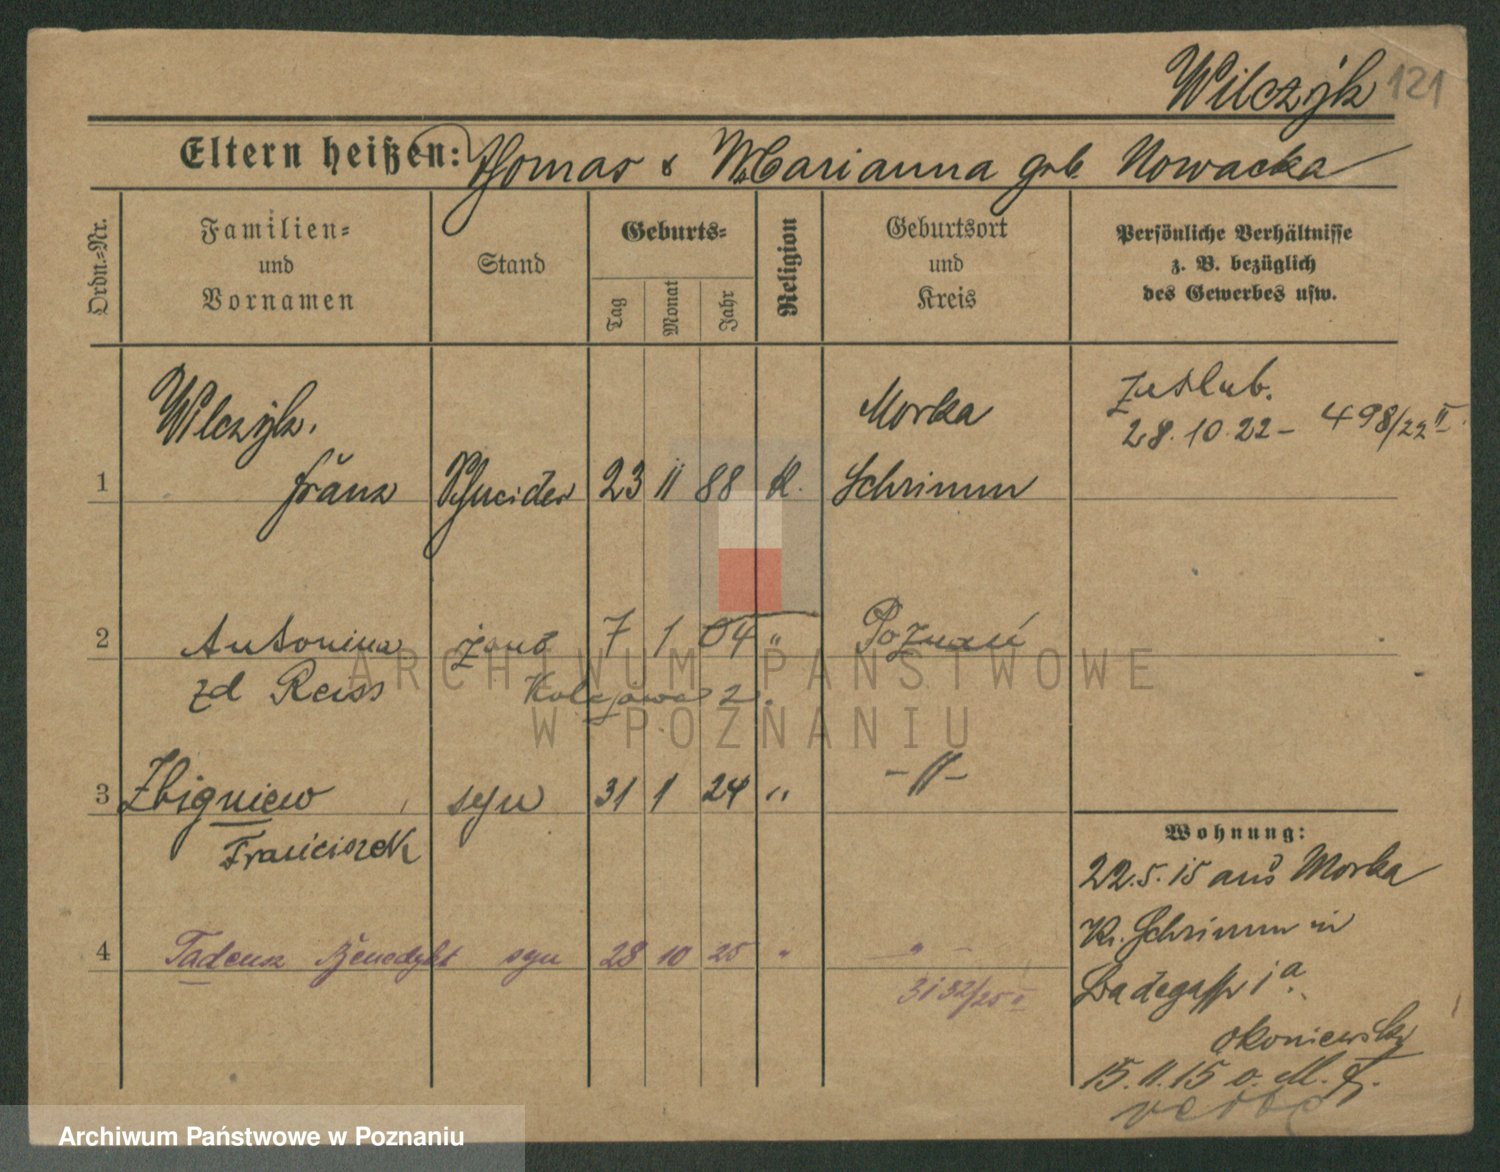 Wilczyk 121
Eltern heißen: Thomas & Marianna geb Nowacka
Ordn.-Nr.
Familien- und Vornamen
Stand
Geburts-
Tag
Monat
Jahr
Religion
Geburtsort und Kreis
Persönliche Verhältnisse
z. B. bezüglich
des Gewerbes usw.
Wilczyk.
Morka
zaślub.
28.10.22 - 498/22 II
1 Franz Schneider 23 11 88 K. Schrimm
2 Antonina żona 7 1 04 " Poznań
zd Reiss Kolejowa 2.
3 Zbigniew syn 31 1 24 " -"-
Franciszek
Wohnung:
22.5.15 aus Morka
Kr. Schrimm in
Badegasse 1a.
Okoniewski
15.11.15 v. M. F.
verte
4 Tadeusz Benedykt syn 28 10 25 " " -
3132/25 II
ARCHIWUM PAŃSTWOWE
W POZNANIU
Archiwum Państwowe w Poznaniu